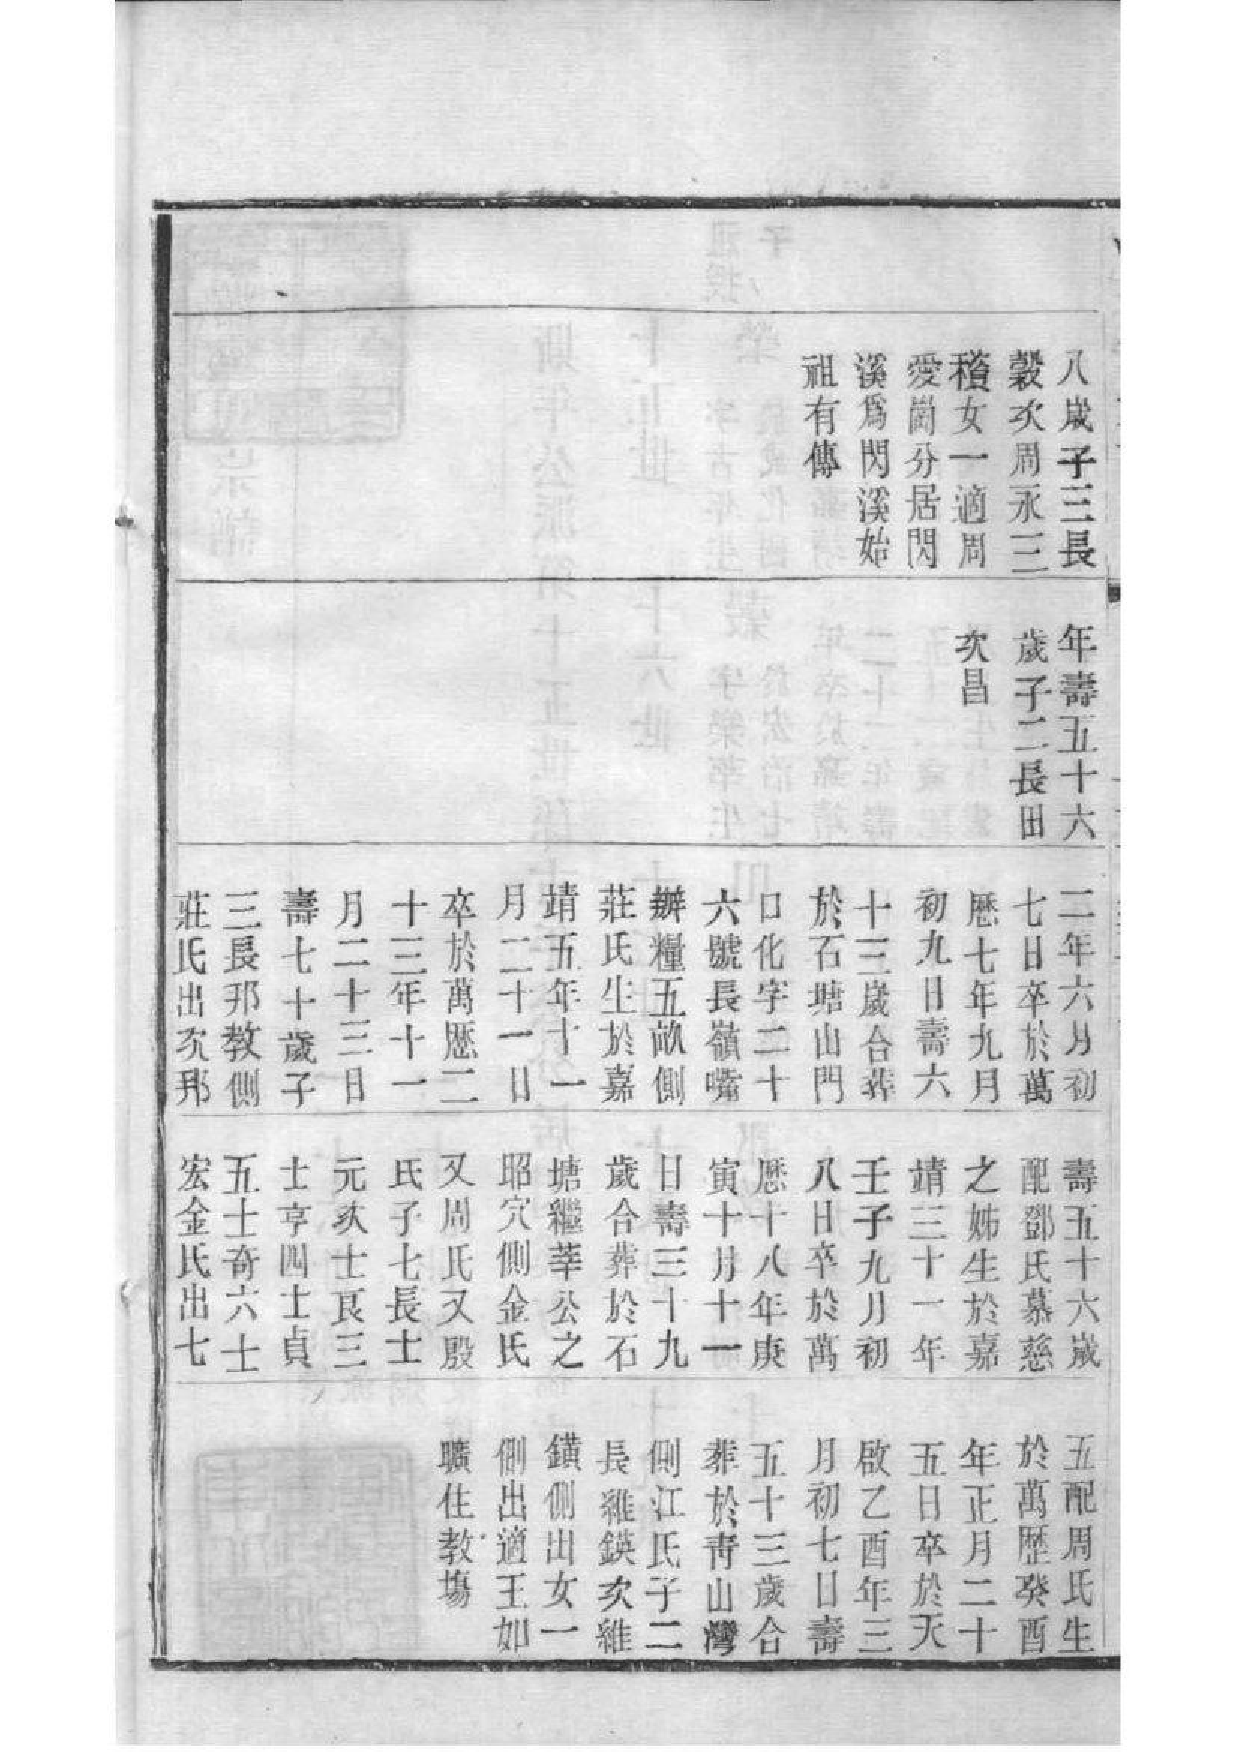 八歲子三長
穀次周永三
稽女一適周
愛崗分居閃
溪爲閃溪始
祖有傳
年壽五十六
歲子二長田
次昌
二年六月初
七日卒於萬
歷七年九月
初九日壽六
十三歲合葬
於石塘山門
口化字二十
六號長嶺嘴
辦糧五畝側
莊氏生於嘉
靖五年十一
月二十一日
卒於萬歷二
十三年十一
月二十三日
壽七十歲子
三長邦教側
莊氏出次邦
壽五十六歲
配鄧氏慕慈
之姊生於嘉
靖三十一年
壬子九月初
八日卒於萬
歷十八年庚
寅十月十一
日壽三十九
歲合葬於石
塘繼莘公之
昭穴側金氏
又周氏又殷
氏子七長士
元次士良三
士亨四士貞
五士奇六士
宏金氏出七
五配周氏生
於萬歷癸酉
年正月二十
五日卒於天
啟乙酉年三
月初七日壽
五十三歲合
葬於青山灣
側江氏子二
長維鍈次維
鐄側出女一
側出適王如
曠住教塲